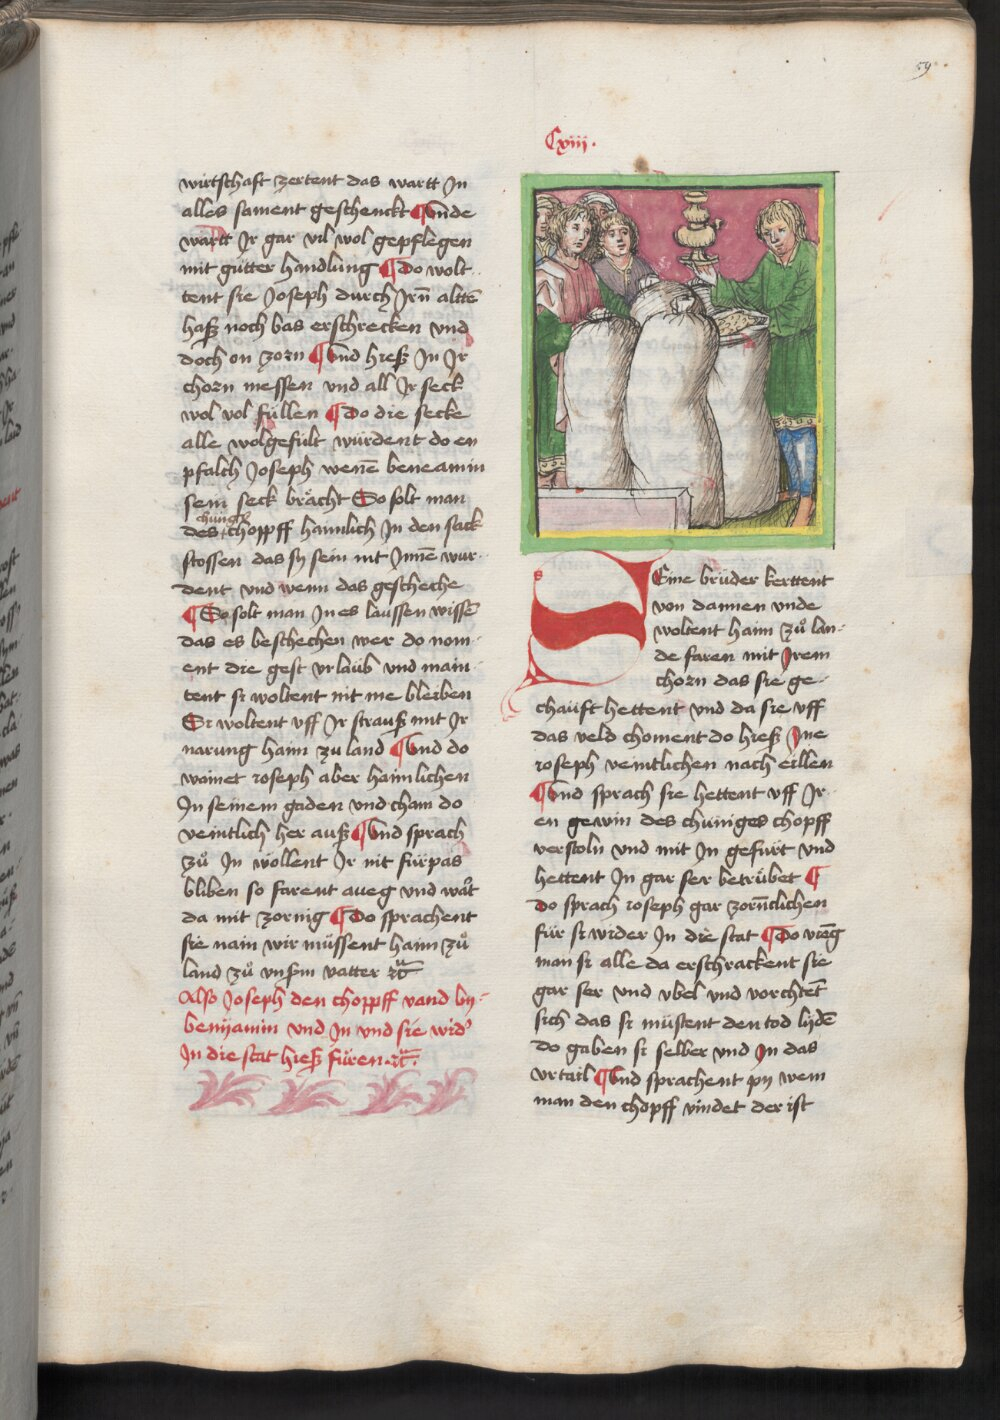 59
Cxiii.
wirtschaft zertent das wartt Jn
alles sament geschenckt ¶ Vnde
wartt Jr gar vil wol gepflegen
mit gůtter handlung ¶ Do wolt
tent sie Joseph durch Jrn̄ alttē
hasz noch bas erschrecken vnd
doch on zorn ¶ Vnd hiesz Jn Jr
chorn messen vnd all Jr seck
wol vol füllen ¶ Do die secke
alle wolgefült wurdent do en
pfalch Joseph wenē beneamin
sein seck brächt So solt man
des chünges chopff haimlich Jn den sack
stossen das sy sein nit Jnnē wur
dent vnd wenn das gescheche
¶ So solt man Jn es laussen wissē
das es beschechen wer do nom
ent die gest vrlaub vnd main
tent si woltent nit me bleiben
Si woltent vff Jr strausz mit Jr
narung haim zu land ¶ Vnd do
wainet ioseph aber haimlichen
Jn seinem gaden vnd cham do
veintlich her ausz ¶ Vnd sprach
zů Jn wöllent Jr nit fürpas
bliben so farent aueg vnd wặt
da mit zornig ¶ Do sprachent
sie nain wir müssent haim zů
land zů vnsm̄ vatter ꝛc
Also Joseph den chopff vand by
benyamin vnd Jn vnd sie wid'
Jn die stat hiesz füren ꝛc.
SEine brüder kerttent
von dannen vnde
woltent haim zů lan
de faren mit Jrem
chorn das sie ge
chauft hettent vnd da sie vff
das veld choment do hiesz Jne
ioseph veintlichen nach eillen
¶ Vnd sprach sie hettent vff Jr
en gewin des chüniges chopff
verstoln vnd mit Jn gefürt vnd
hettent Jn gar ser betrübet ¶
Do sprach ioseph gar zornclichen
für si wider Jn die stat ¶ Do vieng
man si alle da erschrackent sie
gar ser vnd vbel vnd vorchtēt
sich das si müstent den tod lydē
Do gaben si selber vnd Jn das
vrtail ¶ Vnd sprachent py wem
man den chopff vindet der ist